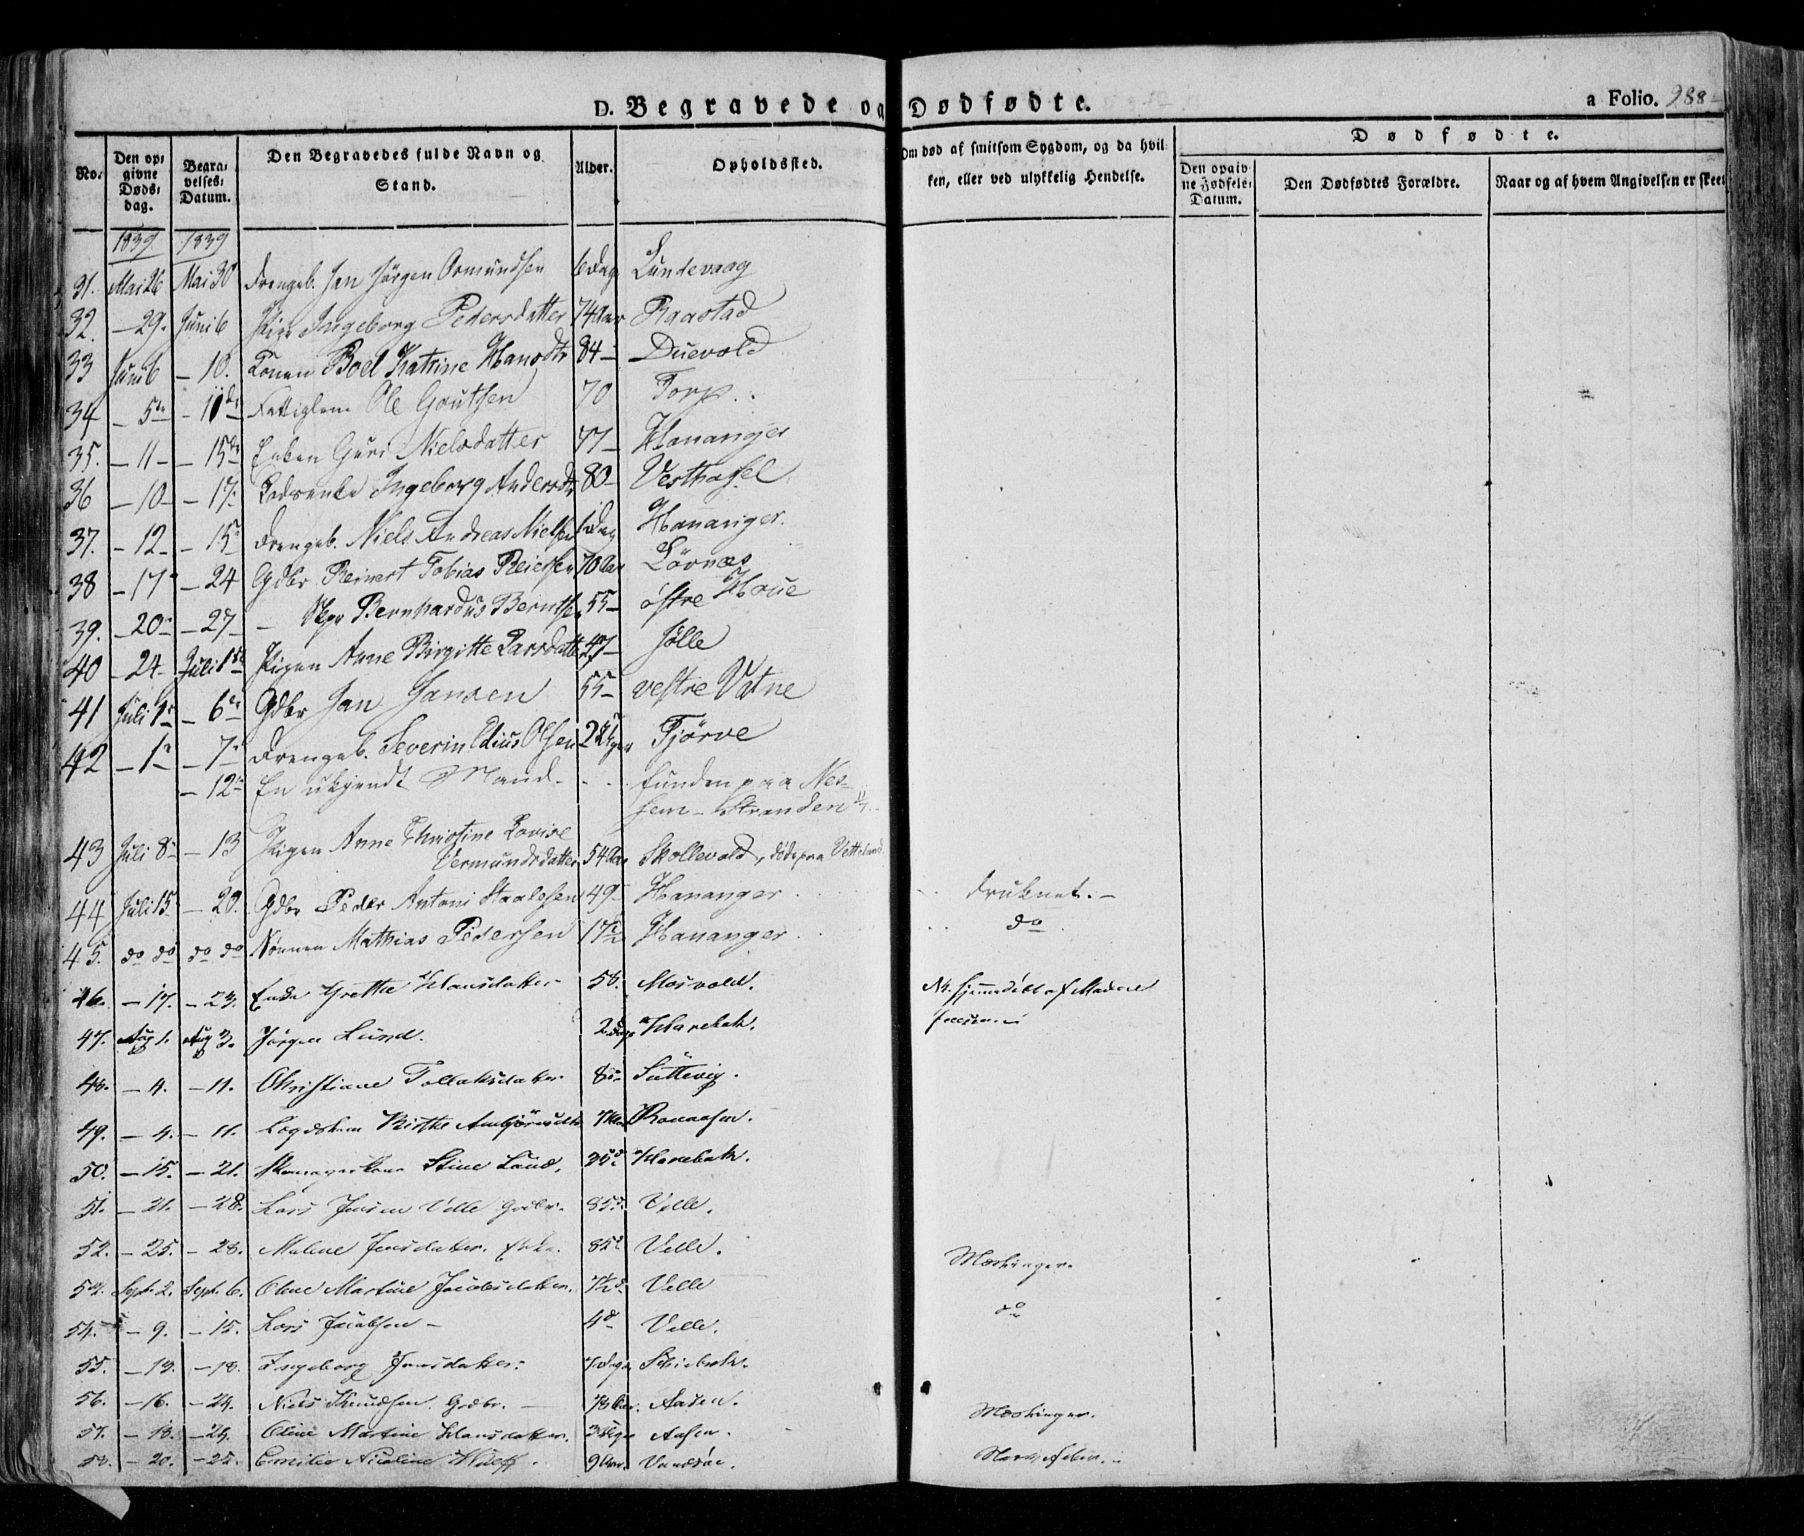 D. Begravede og Dødfødte.
a Folio. 288
No.
Den op-
givne
Døds-
dag.
Begra-
velses-
Datum.
Den Begravedes fulde Navn og
Stand.
Alder.
Opholdssted.
Om død af smitsom Sygdom, og da hvil-
ken, eller ved ulykkelig Hendelse.
Dødfødte.
Den opgiv-
ne Fødsels-
Datum.
Den Dødfødtes Forældre.
Naar og af hvem Angivelsen er skeet
1839. 1839
31. Mai 26 Mai 30 Drengeb. Jan Jørgen Osmundsen 6 Dag Lundevaag
32. — 29. Juni 6 Pige Ingeborg Pedersdatter 74 Aar Raastad
33 Juni 6 — 10. Konen Boel Katrine Hansdtr 84 — Duevold
34 — 5te — 11te Fattiglem Ole Goutsen 70 Torp
35. — 11 — — 15de Enken Guri Nielsdatter 77 — Hananger
36 — 10 — — 17. Ingeborg Andersdtr 80 — Vesthasel
37. — 12 — — 15 Drengeb. Niels Andreas Nielsen Dag Hananger.
38 — 17 — 24 Gdbr Reinert Tobias Reiersen 70 Aar Lövnæs
39. — 20 — — 27 — Bernhardus Berntsen 55 — østre Haue
40 — 24 — Juli 1ste Pigen Anne Birgitte Larsdatter 47 — Jølle
41 Juli 1 — 6te Gdbr Jan Jansen 55 — vestre Vatne
42 — 1 — — 7 Drengeb. Severin Olsen 2 Uger Tjørve
— 12te En ukjendt Mand — funden paa Nes-
hem-Stranden
43 Juli 8 — 13 Pigen Anne Christine Lovise
Vermundsdatter 54 Aar Skollevold, døde paa Vetteland
44 Juli 15. — 20. Gdbr Peder Antoni Staalesen 49 — Hananger druknet. —
45. do do do do Sønnen Mathias Pedersen 17 Hananger do
46. — 17. — 23. Enke Grethe Hansdatter 58. Mosvold.
47. Aug 1. Aug 3. Jørgen Lund. 2 Dage Harebak.
48. — 4. — 11. Christiane Tollaksdatter 8 Suttevig.
49. — 4. — 11. Birthe
50. — 15. — 21. Stine Lund. 35 Harebak.
51. — 21. — 28. Lars Jensen Velle Gdbr. 85. Velle.
52. — 25. — 28. Malene Jensdatter. Enke. 85 Velle.
53. Sept. 2. Sept. 6. Oline Martine Jacobsdatter. Velle Meslinger.
54. — 9. — 15. Lars Jacobsen — 4 Velle. do
55. — 13. — 18. Ingeborg Jensdatter. Dage
56. — 16. — 24. Niels Knudsen. Gdbr. — Aar. Aasen.
57. — 18. — 24. Oline Martine Hansdatter. 3 Uger Aasen. Meslinger.
58. — 20. — 25. Emilie Nicoline 9 Aar. Vansøe.